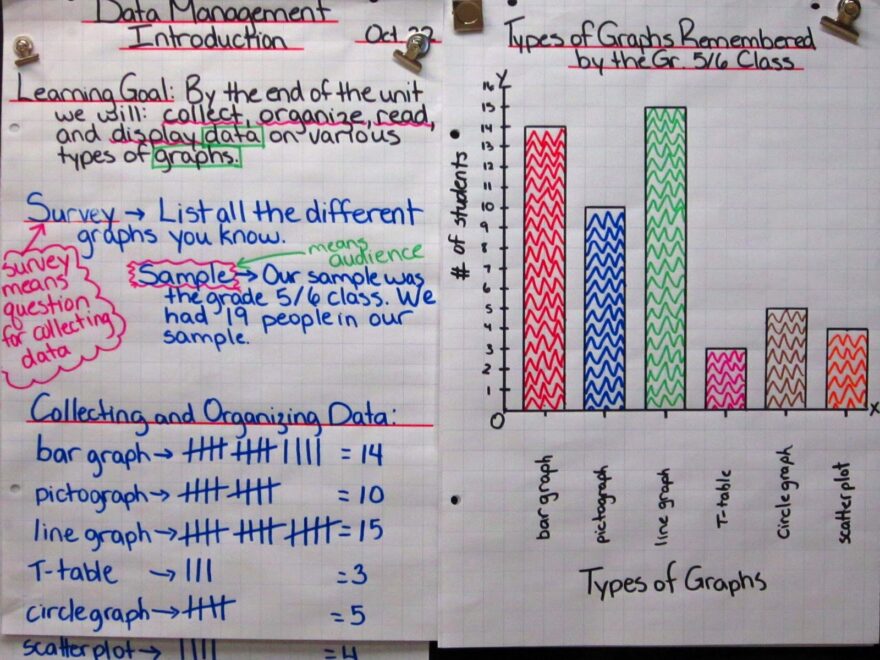 Data Management
Introduction
Oct. 22
Learning Goal: By the end of the unit
we will: collect, organize, read,
and display data on various
types of graphs.
Survey → List all the different
graphs you know.
survey
means
question
for collecting
data
means
audience
Sample → Our sample was
the grade 5/6 class. We
had 19 people in our
sample.
Collecting and Organizing Data:
bar graph → = 14
pictograph → = 10
line graph → = 15
T-table → = 3
circle graph → = 5
scatter plot → = 4
Types of Graphs Remembered
by the Gr. 5/6 Class
Y
16
15
14
13
12
11
10
9
8
7
6
5
4
3
2
1
0
X
# of students
bar graph
pictograph
line graph
T-table
circle graph
scatter plot
Types of Graphs